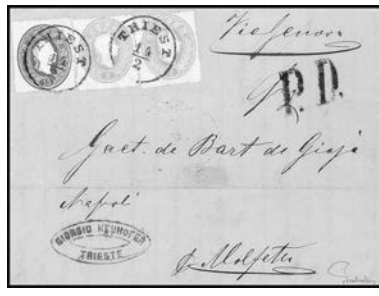 TRIEST
TRIEST
14
2
Via Genova
P.D.
Gaet. de Bart de Gioja
Napoli
GIORGIO NEUHOFER
TRIESTE
p Molfetta